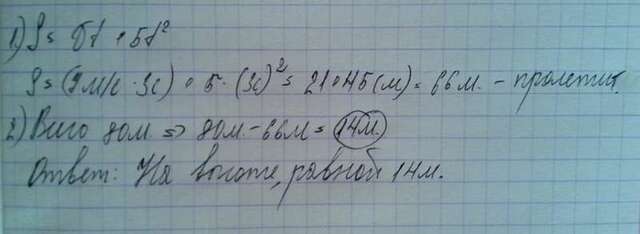 1) S = υt + 5t²
S = (7м/с · 3с) + 5 · (3с)² = 21 + 45(м) = 66м. - пролетит.
2) Всего 80м => 80м - 66м = 14м.
Ответ: На высоте, равной 14м.